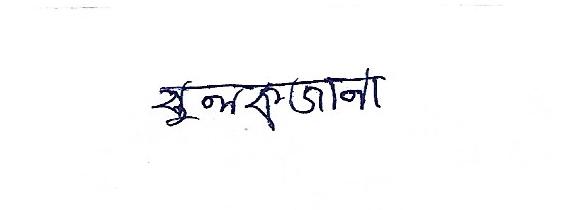 পুলক জানা